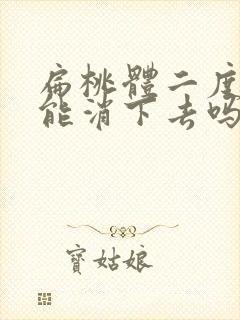 扁桃體二度
能消下去吗
寶姑娘